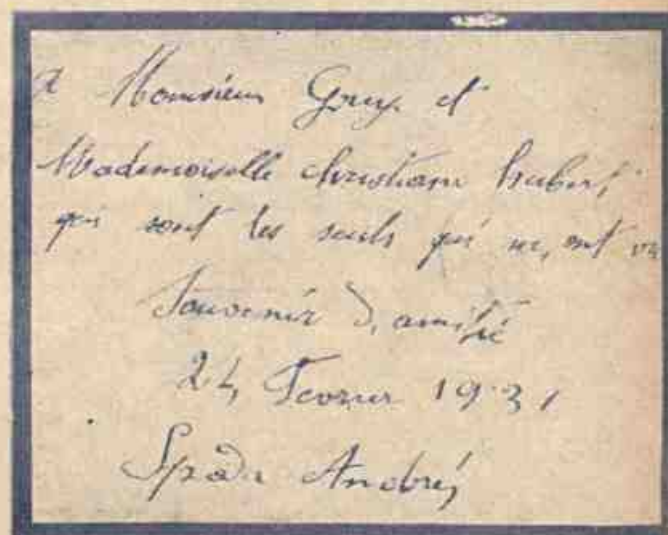 A Monsieur Goux et
Mademoiselle Christiane hubert
qui sont les seuls qui m, ont vu
Souvenir D, amitié
24 Fevrier 1931
Spada André